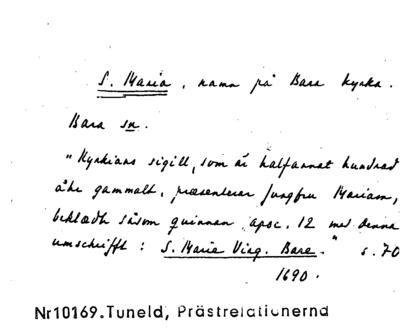 S. Maria, namn på Bara kyrka.
Bara sn.
"Kyrkians sigill, som är halfannat hundrad
åhr gammalt, præsenterar Jungfru Mariam,
beklædh såsom quinnan apoc. 12 med denna
umschrifft: S. Maria Virg. Bare." s. 70
1690.
Nr10169. Tuneld, Prästrelationerna